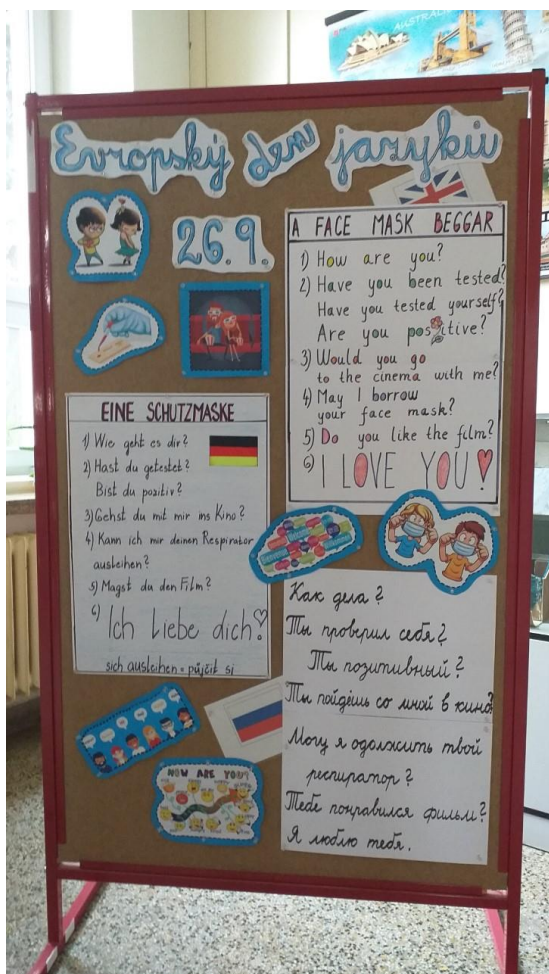 AUSTRALIA
Evropský den jazyků
26.9.
A FACE MASK BEGGAR
1) How are you?
2) Have you been tested?
Have you tested yourself?
Are you positive?
3) Would you go
to the cinema with me?
4) May I borrow
your face mask?
5) Do you like the film?
6) I LOVE YOU!
EINE SCHUTZMASKE
1) Wie geht es dir?
2) Hast du getestet?
Bist du pozitiv?
3) Gehst du mit mir ins Kino?
4) Kann ich mir deinen Respirator
ausleihen?
5) Magst du den Film?
6) Ich Liebe dich!
sich ausleihen = půjčit si
Как дела?
Ты проверил себя?
Ты позитивный?
Ты пойдёшь со мной в кино?
Могу я одолжить твой
респиратор?
Тебе понравился фильм?
Я люблю тебя.
HOW ARE YOU?